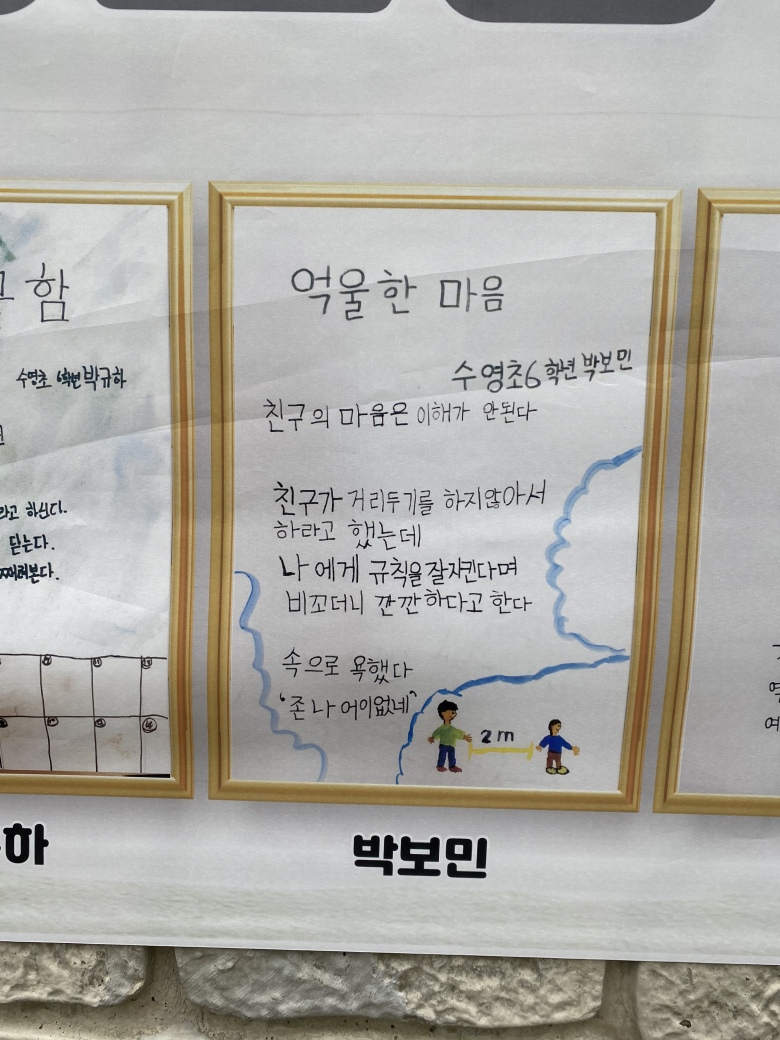 함
수영초 6학년 박규하
라고 하신다.
닫는다.
째려본다.
하
억울한 마음
수영초6학년 박보민
친구의 마음은 이해가 안된다
친구가 거리두기를 하지않아서
하라고 했는데
나에게 규칙을잘지킨다며
비꼬더니 깐깐하다고 한다
속으로 욕했다
‘존나 어이없네”
2m
박보민
예